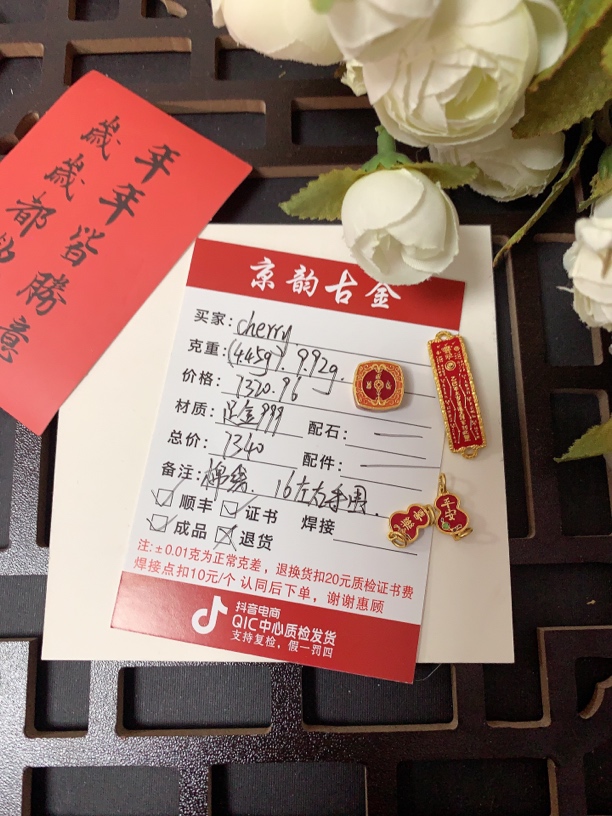 年年皆勝
歲歲都如意
京韵古金
买家: cherry
克重: (4.45g). 9.92g.
价格: 7320.96
材质: 足金999 配石: —
总价: 7340 配件: —
备注: 棉绳. 16左右手围.
顺丰 证书 焊接
成品 退货
注:±0.01克为正常克差，退换货扣20元质检证书费
焊接点扣10元/个 认同后下单，谢谢惠顾
抖音电商
QIC中心质检发货
支持复检，假一罚四
平安